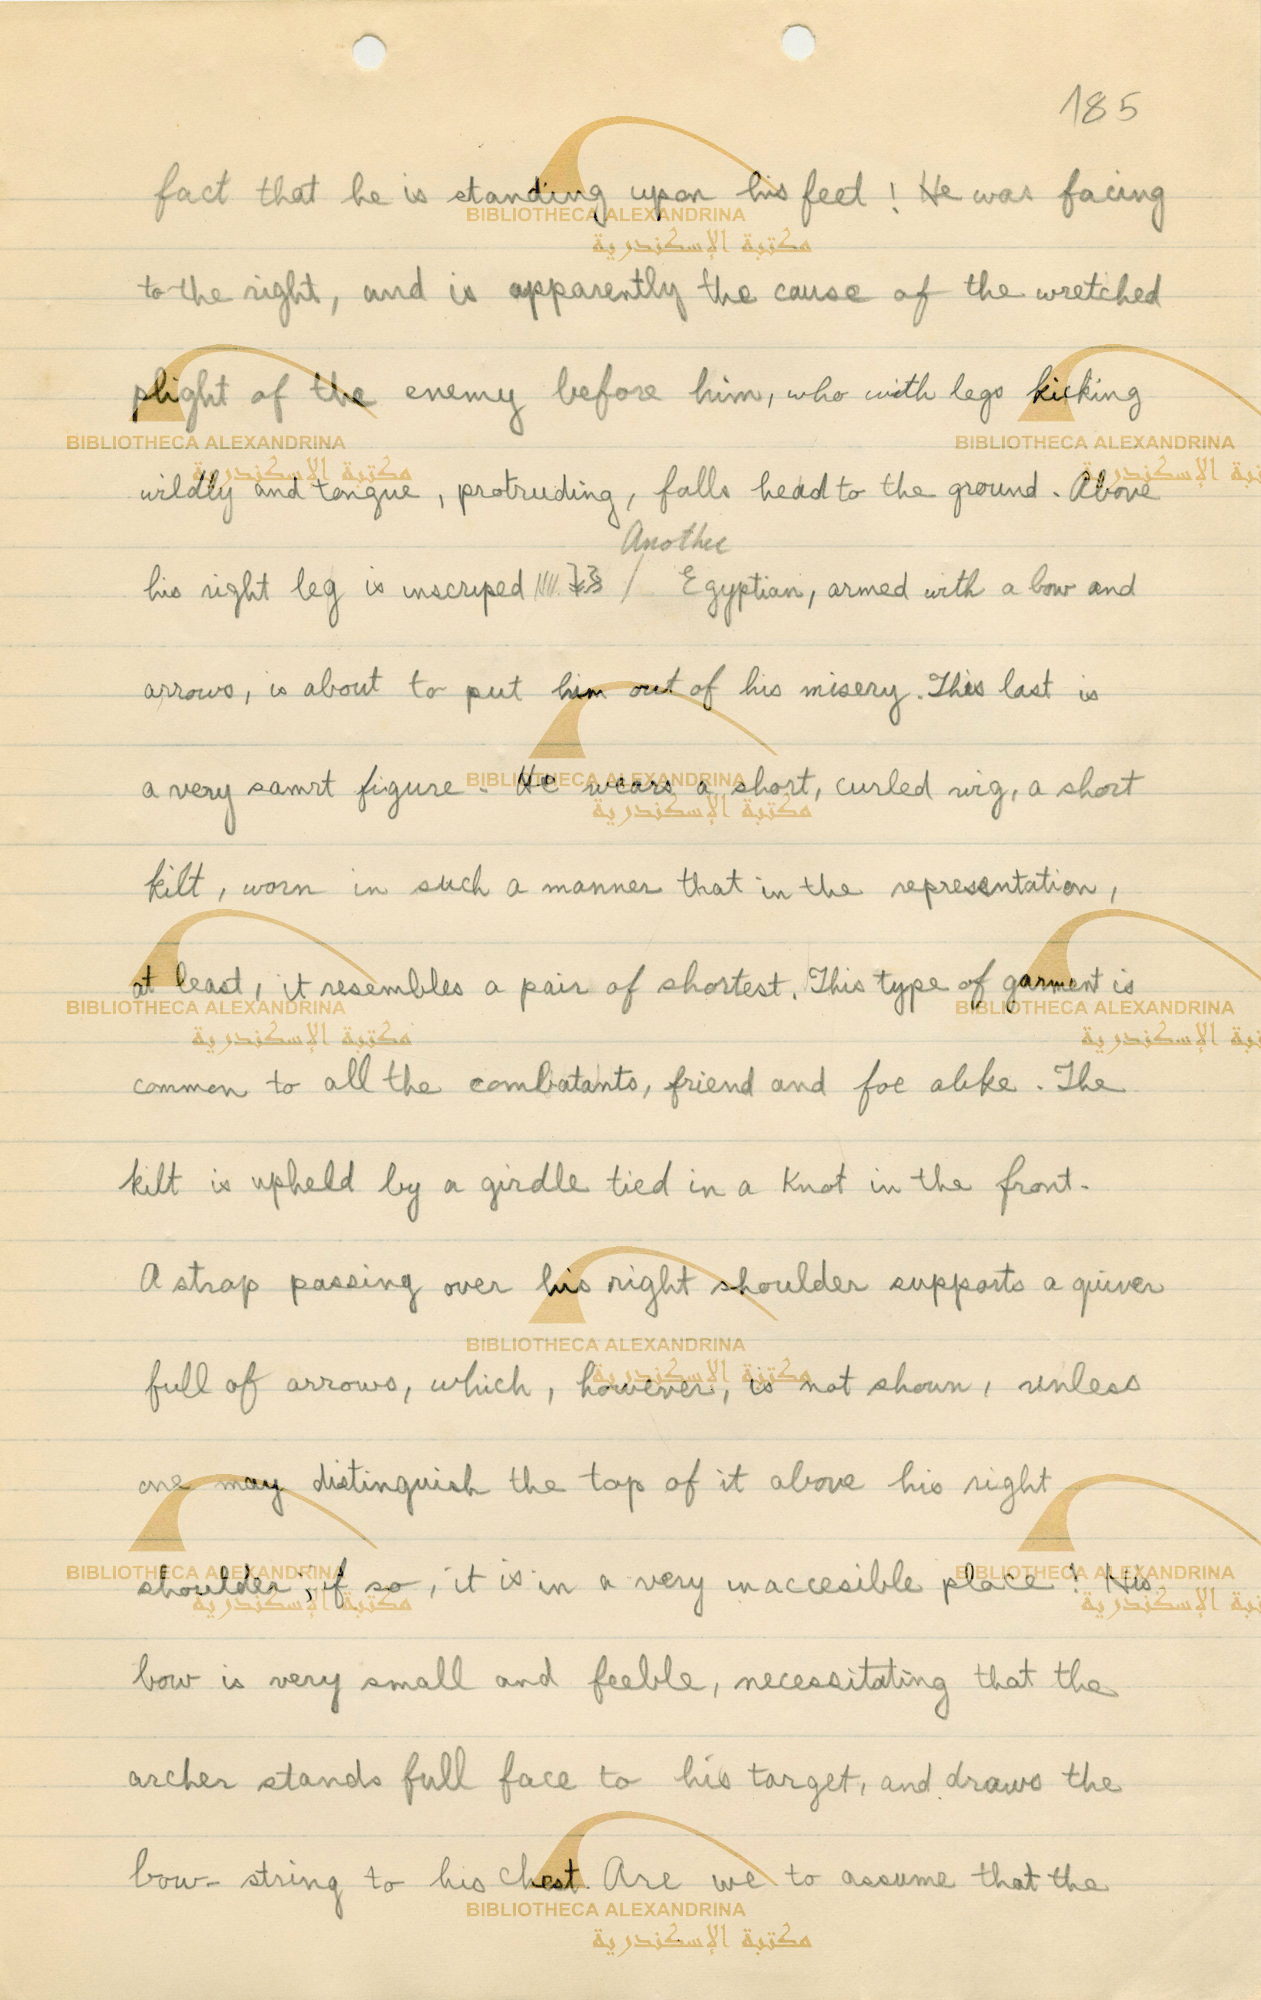 185
fact that he is standing upon his feet ! He was facing
to the right, and is apparently the cause of the wretched
plight of the enemy before him, who with legs kicking
wildly and tongue, protruding, falls head to the ground. Above
Another
his right leg is inscriped / Egyptian, armed with a bow and
arrows, is about to put him out of his misery. This last is
a very samrt figure. He wears a short, curled wig, a short
kilt, worn in such a manner that in the representation,
at least, it resembles a pair of shortest. This type of garment is
common to all the combatants, friend and foe alike. The
kilt is upheld by a girdle tied in a Knot in the front.
A strap passing over his right shoulder supports a quiver
full of arrows, which, however, is not shown, unless
one may distinguish the top of it above his right
shoulder; if so, it is in a very inaccesible place! His
bow is very small and feeble, necessitating that the
archer stands full face to his target, and draws the
bow-string to his chest. Are we to assume that the
BIBLIOTHECA ALEXANDRINA
مكتبة الإسكندرية
BIBLIOTHECA ALEXANDRINA
مكتبة الإسكندرية
BIBLIOTHECA ALEXANDRINA
مكتبة الإسكندرية
BIBLIOTHECA ALEXANDRINA
مكتبة الإسكندرية
BIBLIOTHECA ALEXANDRINA
مكتبة الإسكندرية
BIBLIOTHECA ALEXANDRINA
مكتبة الإسكندرية
BIBLIOTHECA ALEXANDRINA
مكتبة الإسكندرية
BIBLIOTHECA ALEXANDRINA
مكتبة الإسكندرية
BIBLIOTHECA ALEXANDRINA
مكتبة الإسكندرية
BIBLIOTHECA ALEXANDRINA
مكتبة الإسكندرية